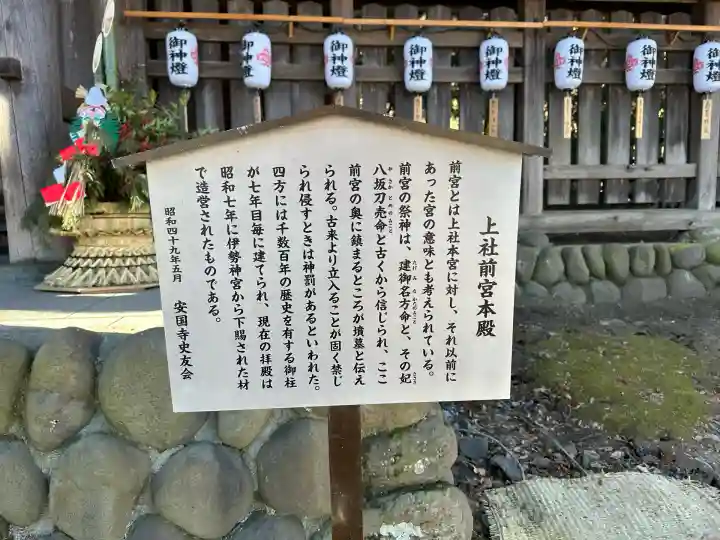 御神燈
御神燈
御神燈
御神燈
御神燈
御神燈
御神燈
上社前宮本殿
前宮とは上社本宮に対し、それ以前に
あった宮の意味とも考えられている。
前宮の祭神は、建御名方命と、その妃
八坂刀売命と古くから信じられ、ここ
前宮の奥に鎮まるところが墳墓と伝え
られる。古来より立入ることが固く禁じ
られ侵すときは神罰があるといわれた。
四方には千数百年の歴史を有する御柱
が七年目毎に建てられ、現在の拝殿は
昭和七年に伊勢神宮から下賜された材
で造営されたものである。
昭和四十九年五月
安国寺史友会